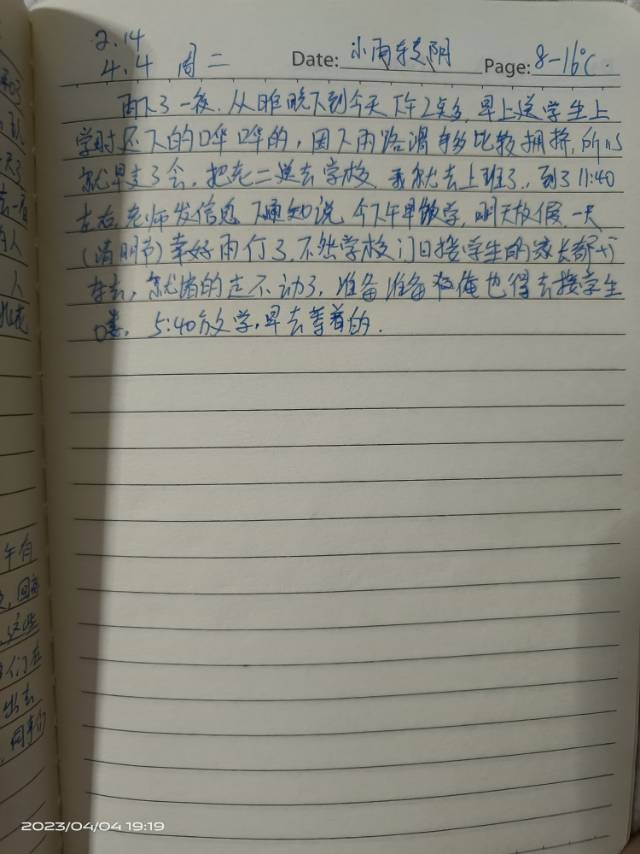 2.14
4.4 周二 Date: 小雨转阴 Page: 8-16℃.
雨下了一夜. 从昨晚下到今天下午2点多, 早上送学生上
学时还下的哗哗的, 因下雨路滑 比较拥挤, 所以
就早走了会, 把老二送去学校 我就去上班了, 到了11:40
左右, 老师发信息 下通知说 今下午早放学, 明天放假 一天
(清明节) 幸好雨停了, 不然学校门口接学生的家长都
车去, 就堵的走不动了, 准备准备 俺也得去接学生
娄, 5:40分放学, 早去等着的.
午有
这些
们在
出去
2023/04/04 19:19